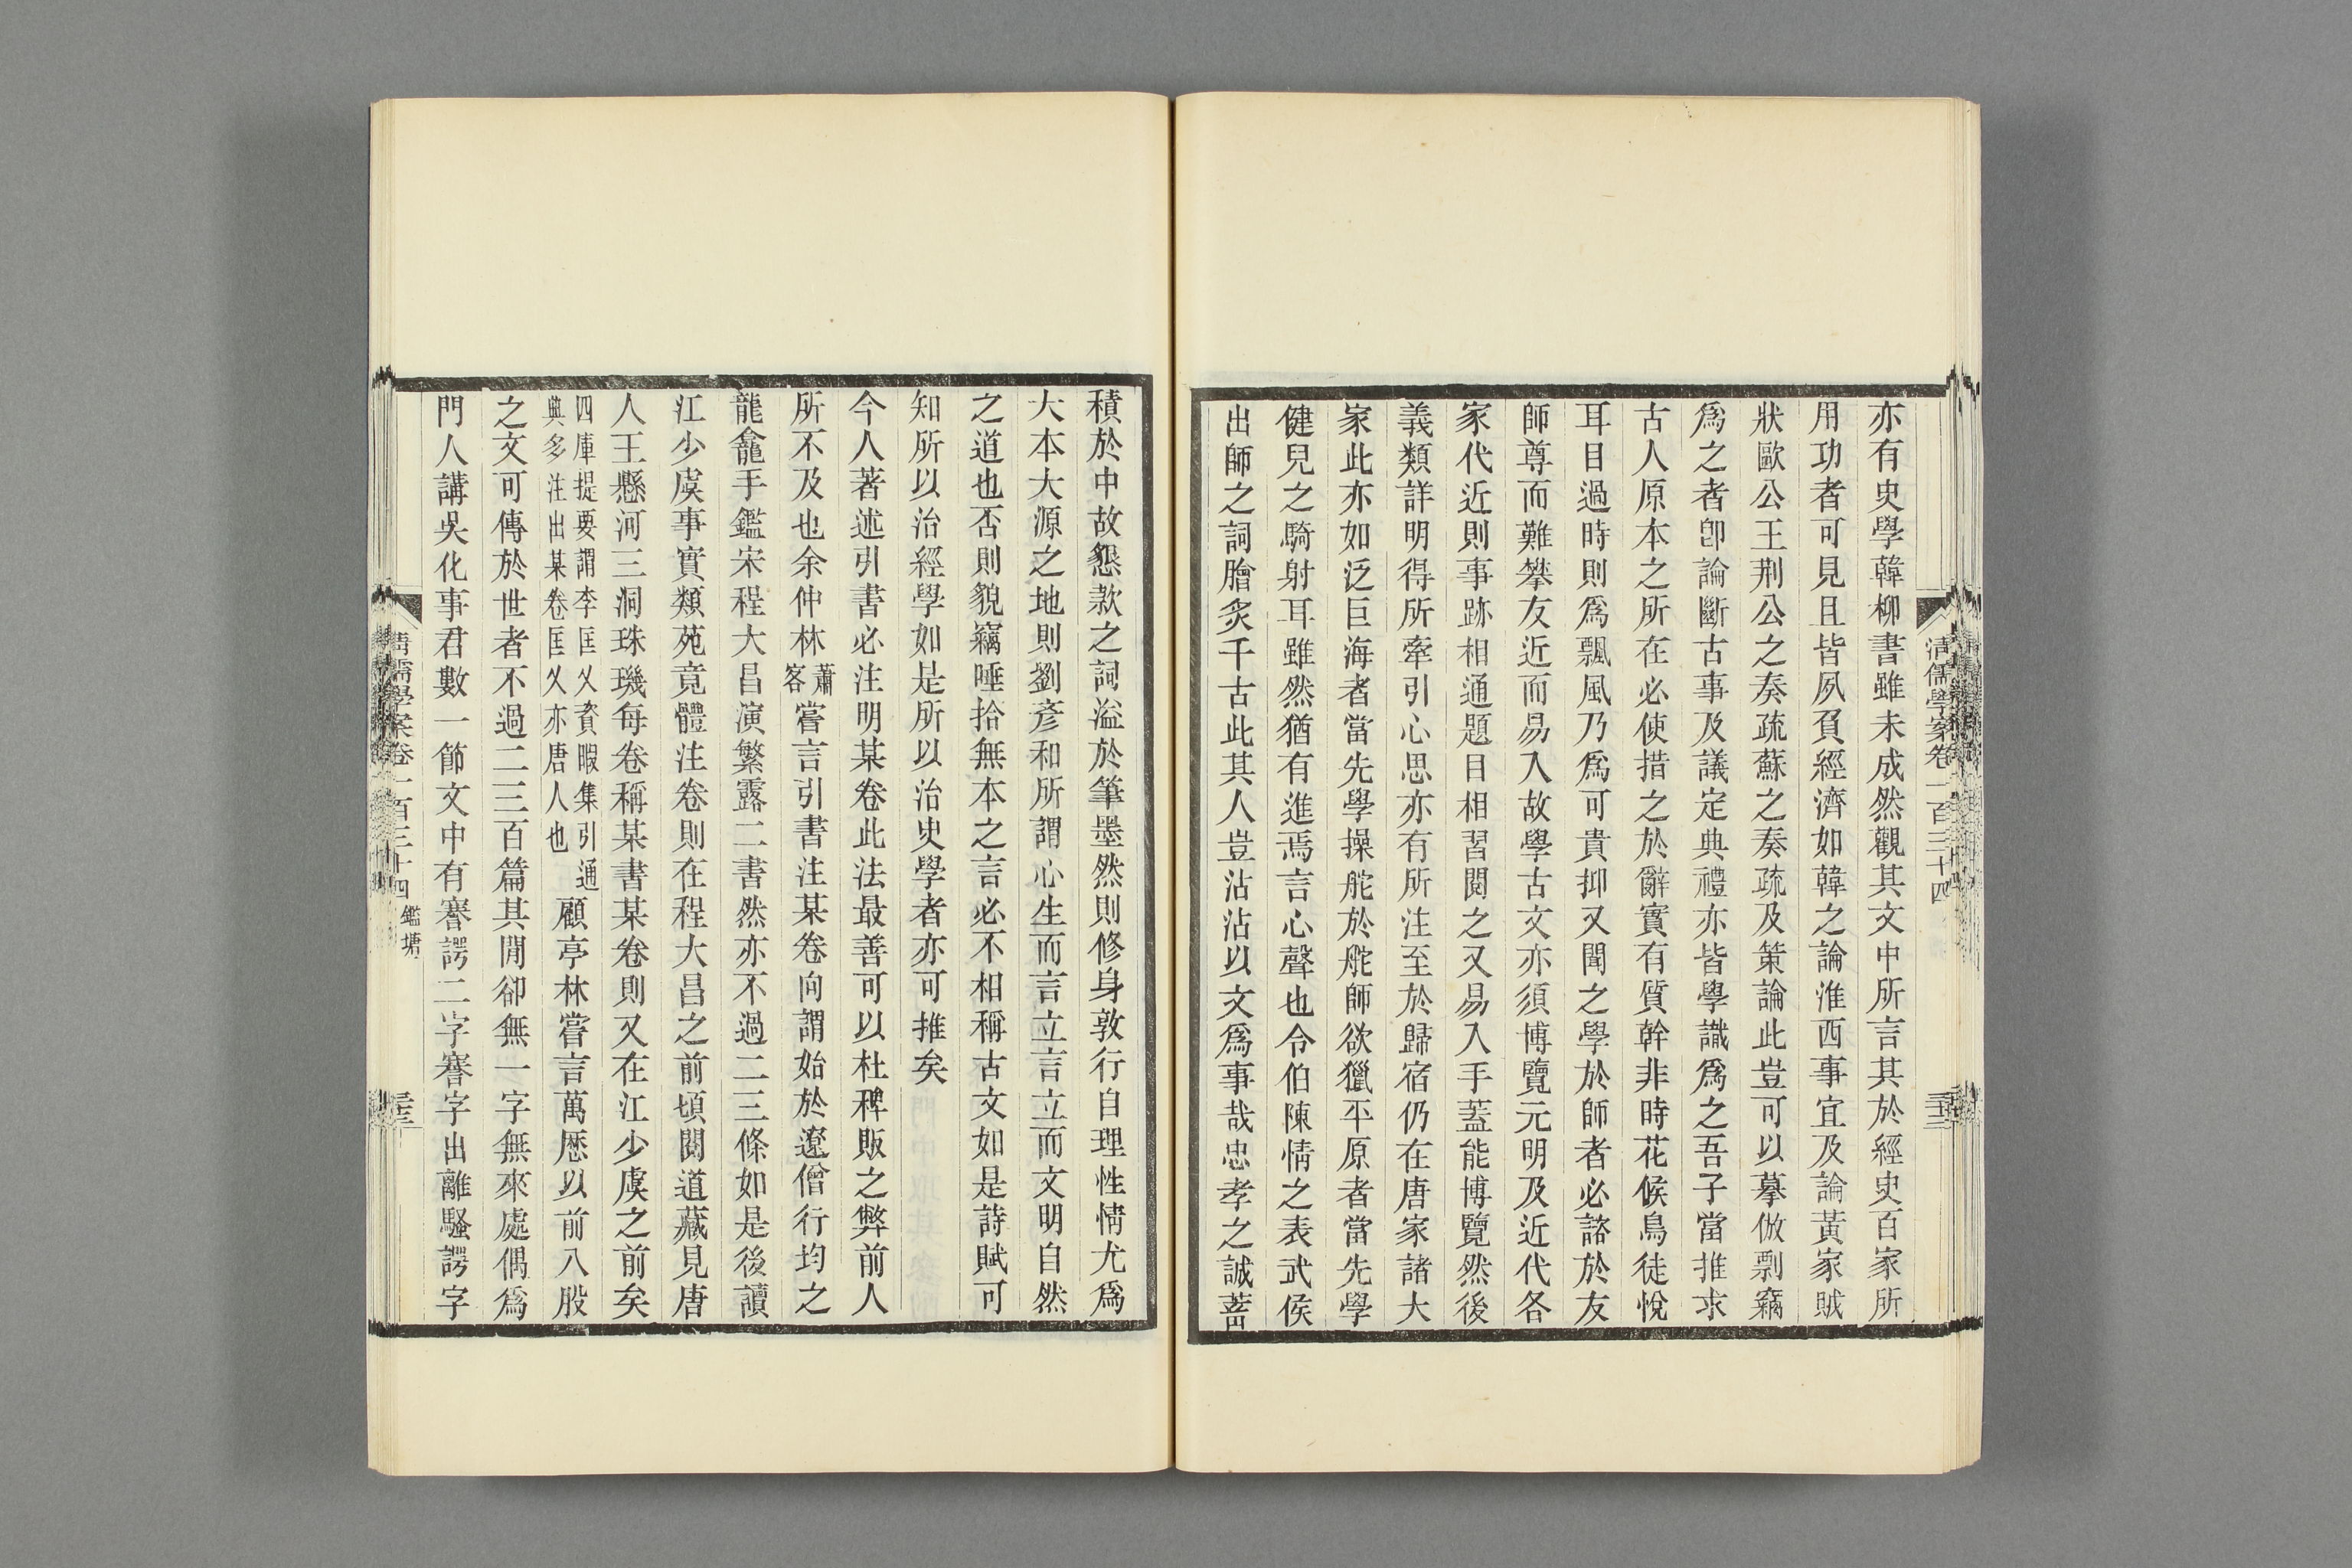 清儒學案卷一百三十四
亦有史學韓柳書雖未成然觀其文中所言其於經史百家所
用功者可見且皆夙負經濟如韓之論淮西事宜及論黃家賊
狀歐公王荆公之奏疏蘇之奏疏及策論此豈可以摹倣剽竊
爲之者卽論斷古事及議定典禮亦皆學識爲之吾子當推求
古人原本之所在必使措之於辭實有質幹非時花候鳥徒悅
耳目過時則爲飄風乃爲可貴抑又聞之學於師者必諮於友
師尊而難攀友近而易入故學古文亦須博覽元明及近代各
家代近則事跡相通題目相習閱之又易入手蓋能博覽然後
義類詳明得所牽引心思亦有所注至於歸宿仍在唐家諸大
家此亦如泛巨海者當先學操舵於舵師欲獵平原者當先學
健兒之騎射耳雖然猶有進焉言心聲也令伯陳情之表武侯
出師之詞膾炙千古此其人豈沾沾以文爲事哉忠孝之誠蓄
積於中故怨款之詞溢於筆墨然則修身敦行自理性情尤爲
大本大源之地則劉彥和所謂心生而言立言立而文明自然
之道也否則貌竊唾拾無本之言必不相稱古文如是詩賦可
知所以治經學如是所以治史學者亦可推矣
今人著述引書必注明某卷此法最善可以杜稗販之弊前人
所不及也余仲林蕭客嘗言引書注某卷向謂始於遼僧行均之
龍龕手鑑宋程大昌演繁露二書然亦不過二三條如是後讀
江少虞事實類苑竟體注卷則在程大昌之前頃閱道藏見唐
人王懸河三洞珠璣每卷稱某書某卷則又在江少虞之前矣
四庫提要謂李匡乂資暇集引通
典多注出某卷匡乂亦唐人也
顧亭林嘗言萬歷以前八股
之文可傳於世者不過二三百篇其閒卻無一字無來處偶爲
門人講吳化事君數一節文中有謇諤二字謇字出離騷諤字
清儒學案卷一百三十四
鑑塘